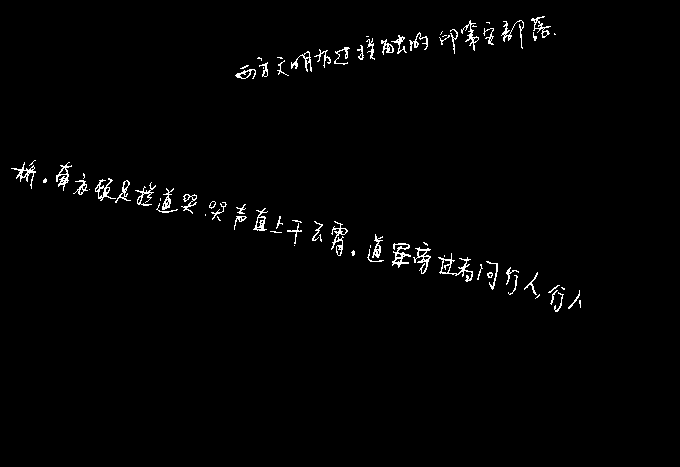 西方文明有过接触的印第安部落.
桥。牵衣顿足拦道哭,哭声直上干云霄。道旁过者问行人,行人